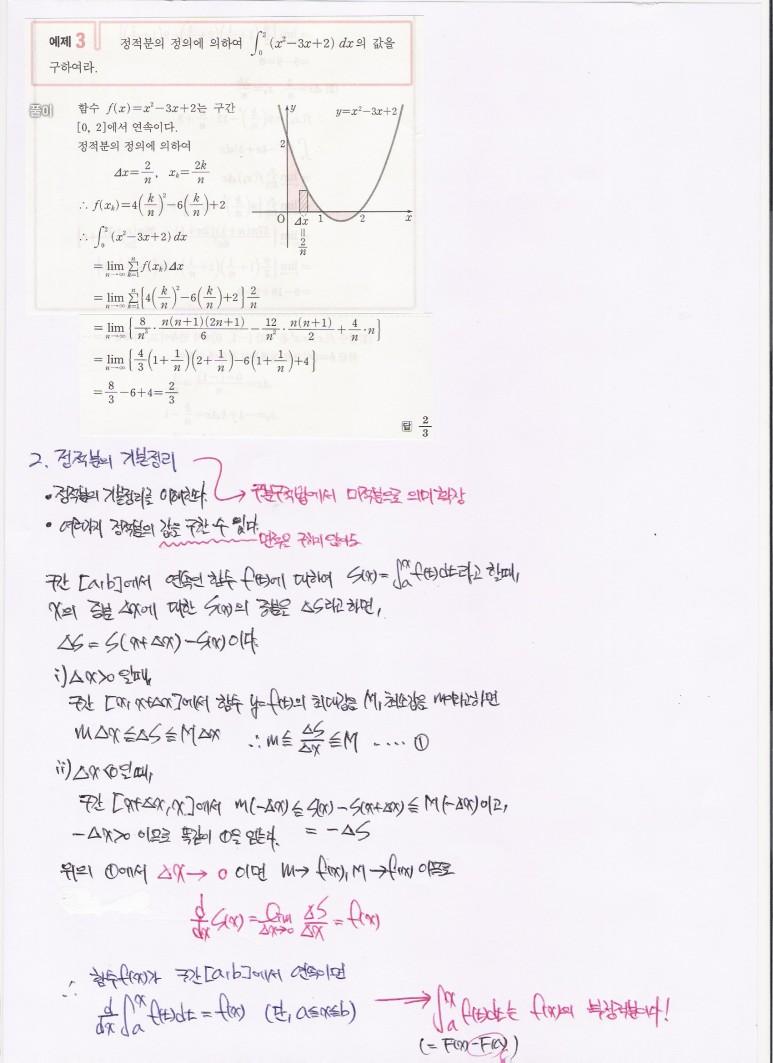 예제 3 정적분의 정의에 의하여 ∫₀²(x²−3x+2) dx의 값을
구하여라.
풀이
함수 f(x)=x²−3x+2는 구간
[0, 2]에서 연속이다.
정적분의 정의에 의하여
Δx=2/n, xₖ=2k/n
∴ f(xₖ)=4(k/n)²−6(k/n)+2
∴ ∫₀²(x²−3x+2) dx
=lim_{n→∞} Σ_{k=1}^{n} f(xₖ)Δx
=lim_{n→∞} Σ_{k=1}^{n} {4(k/n)²−6(k/n)+2} 2/n
=lim_{n→∞} {8/n³·n(n+1)(2n+1)/6−12/n²·n(n+1)/2+4/n·n}
=lim_{n→∞} {4/3(1+1/n)(2+1/n)−6(1+1/n)+4}
=8/3−6+4=2/3
답 2/3
y
y=x²−3x+2
2
O Δx 1 2 x
=
2/n
2. 정적분의 기본정리
• 정적분의 기본정리를 이해한다. → 구분구적법에서 미적분으로 의미확장
• 여러가지 정적분의 값을 구할 수 있다.
면적은 구하지 않아도
구간 [a,b]에서 연속인 함수 f(t)에 대하여 S(x)=∫ₐˣf(t)dt라고 할때,
x의 증분 Δx에 대한 S(x)의 증분을 ΔS라고하면,
ΔS = S(x+Δx)−S(x)이다.
i) Δx>0 일때,
구간 [x, x+Δx]에서 함수 y=f(t)의 최대값을 M, 최소값을 m이라고하면
mΔx≦ΔS≦MΔx ∴ m≦ΔS/Δx≦M ···· ①
ii) Δx<0 일때,
구간 [x+Δx, x]에서 m(−Δx)≦S(x)−S(x+Δx)≦M(−Δx)이고,
−Δx>0 이므로 똑같이 ①을 얻는다. = −ΔS
위의 ①에서 Δx→0 이면 m→f(x), M→f(x) 이므로
d/dx S(x)=lim_{Δx→0} ΔS/Δx=f(x)
∴ 함수f(x)가 구간[a,b]에서 연속이면
d/dx∫ₐˣf(t)dt=f(x) (단, a≦x≦b) → ∫ₐˣf(t)dt는 f(x)의 부정적분이다!
(= F(x)−F(a))